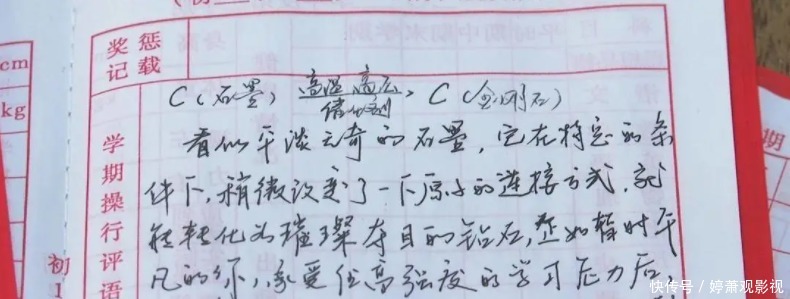 奖惩
记载
cm
kg
学期操行评语
初1
C(石墨) 高温 高压 催化剂 C(金刚石)
看似平淡无奇的石墨,它在特定的条
件下,稍微改变了一下原子的连接方式,就
能转化为璀璨夺目的钻石,正如暂时平
凡的你,承受住高强度的学习压力后,
快传号 / 婷萧观影视